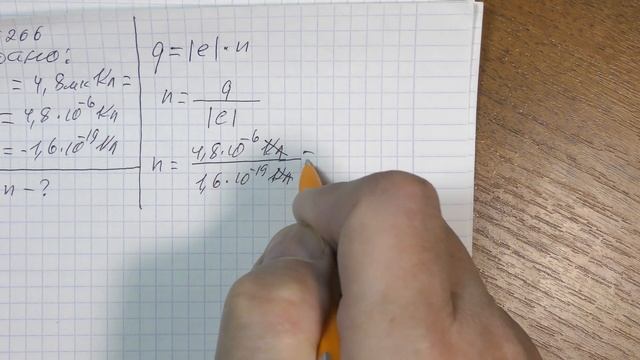 266
ано:
= 4,8 мкКл =
= 4,8·10⁻⁶ Кл
= -1,6·10⁻¹⁹ Кл
n - ?
q = |e|·n
n = q / |e|
n = 4,8·10⁻⁶ Кл / 1,6·10⁻¹⁹ Кл =